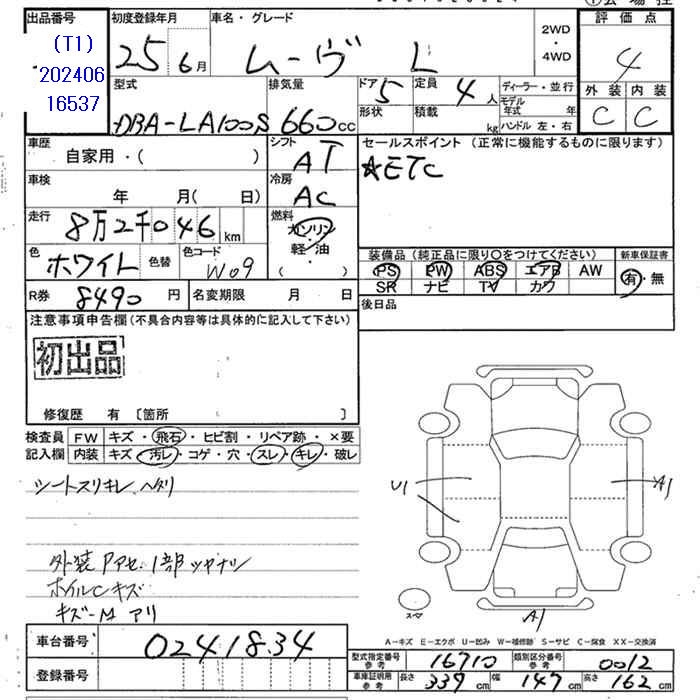 出品番号
(T1)
202406
16537
初度登録年月
25 6月
車名・グレード
ムーヴ L
2WD
・
4WD
評価点
4
外装 内装
C C
型式
DBA-LA100S
排気量
660cc
ドア 5
形状
定員 4人
積載 kg
ディーラー・並行
モデル年式 年
ハンドル 左・右
車歴
自家用・( )
シフト
AT
セールスポイント (正常に機能するものに限ります)
☆ETC
車検
年 月( 日)
冷房
AC
走行
8万2千046 km
燃料
ガソリン
軽・油
( )
色
ホワイト
色替
色コード
W09
装備品 (純正品に限り○をつけてください)
PS PW ABS エアB AW
SR ナビ TV カワ
新車保証書
有・無
R券 8490 円
名変期限 月 日
後日品
注意事項申告欄(不具合内容等は具体的に記入して下さい)
初出品
修復歴 有 〔箇所 〕
検査員
記入欄
FW キズ・飛石・ヒビ割・リペア跡・×要
内装 キズ・汚レ・コゲ・穴・スレ・キレ・破レ
シートスリキレ ヘタリ
外装 Pアセ.1部ツヤナシ
ホイルCキズ
キズーM アリ
U1
A1
スペア
A1
A-キズ E-エクボ U-凹み W-補修跡 S-サビ C-腐食 XX-交換済
車台番号
0241834
登録番号
型式指定番号
参考
16710
類別区分番号
参考
0012
車庫証明用
参考
長さ 339cm
幅 147cm
高さ 162cm